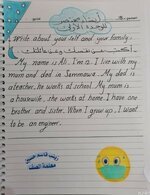 Write about your self and your family.
أكتب عن نفسك وعن عائلتك
My name is Ali. I'm a. I live with my
mum and dad in Sammawa. My dad is
a teacher, he works at school. My mum is
a housewife, she works at home. I have one
brother and sister. When I grow up, I want
to be an engineer.
زينب قاسم حسن